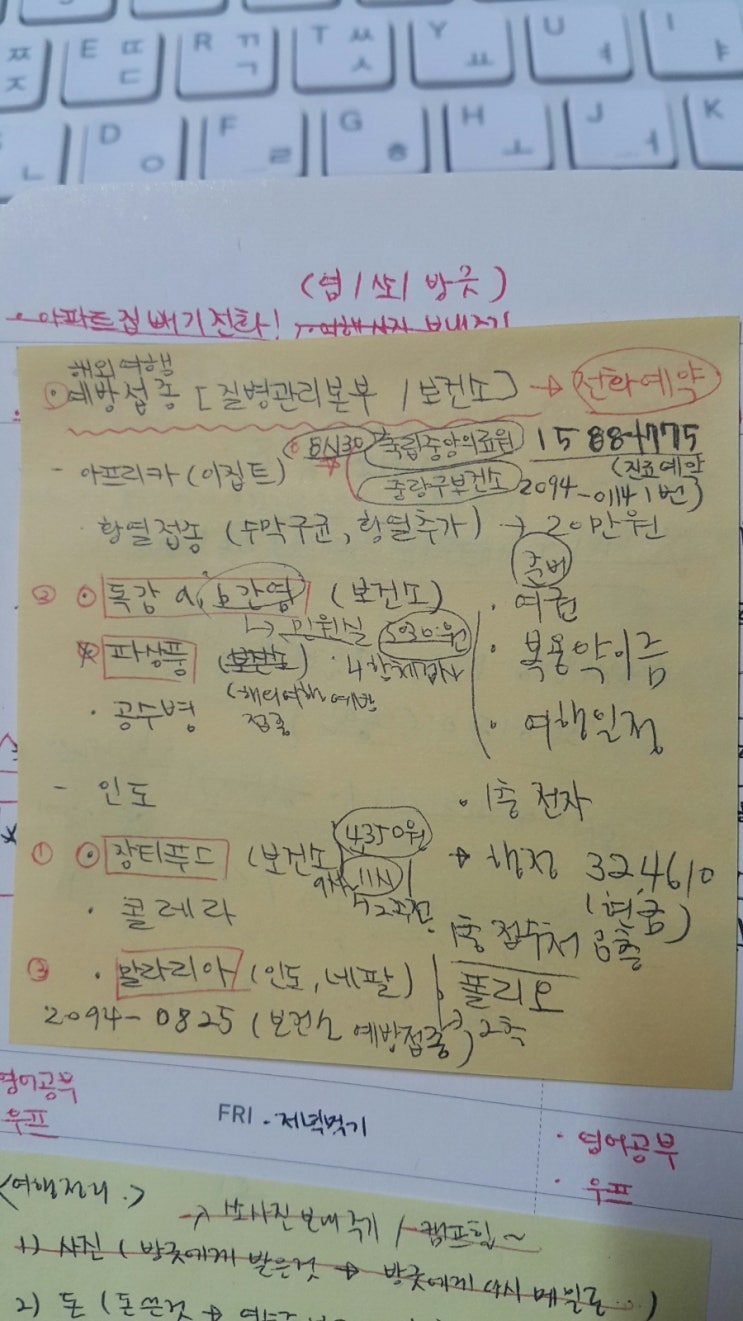 ㅉ ㅈ E ㄸ ㄷ R ㄲ ㄱ T ㅆ ㅅ Y ㅛ U ㅕ I ㅑ
ㄴ D ㅇ F ㄹ G ㅎ H ㅗ J ㅓ K
(엽/쏘/방긋)
• 아파트 집 빼기 전화! → 여행사자 보내주기
해외여행
① • 예방접종 [질병관리본부 / 보건소] → 전화예약
8시30 국립중앙의료원 1588-1775
- 아프리카 (이집트) (진료예약
중랑구보건소 2094-0114 1번)
• 황열접종 (수막구균, 황열추가) → 20만원
준비
② • 독감 a, b간염 (보건소) • 여권
↳ 민원실
파상풍 (보건소) • 4항체검사 • 복용약이름
(해외여행 예방
• 공수병 접종 • 여행일정
- 인도 • 1층 전자
4350원
① • 장티푸드 (보건소) → 행정 32,4610
9시, 11시 (현금)
• 콜레라 5 2주전 1층 접수처 공촐
③ • 말라리아 (인도, 네팔) 폴리오
2094-0825 (보건소 예방접종) 2층
영어공부
우프
FRI • 저녁먹기
• 영어공부
• 우프
<여행정리.>
→ 쏘사진 보내주기 / 캠프힐~
1) 사진 (방긋에게 받은것 → 방긋에게 다시 메일로...)
2) 돈 (돈쓴것 →